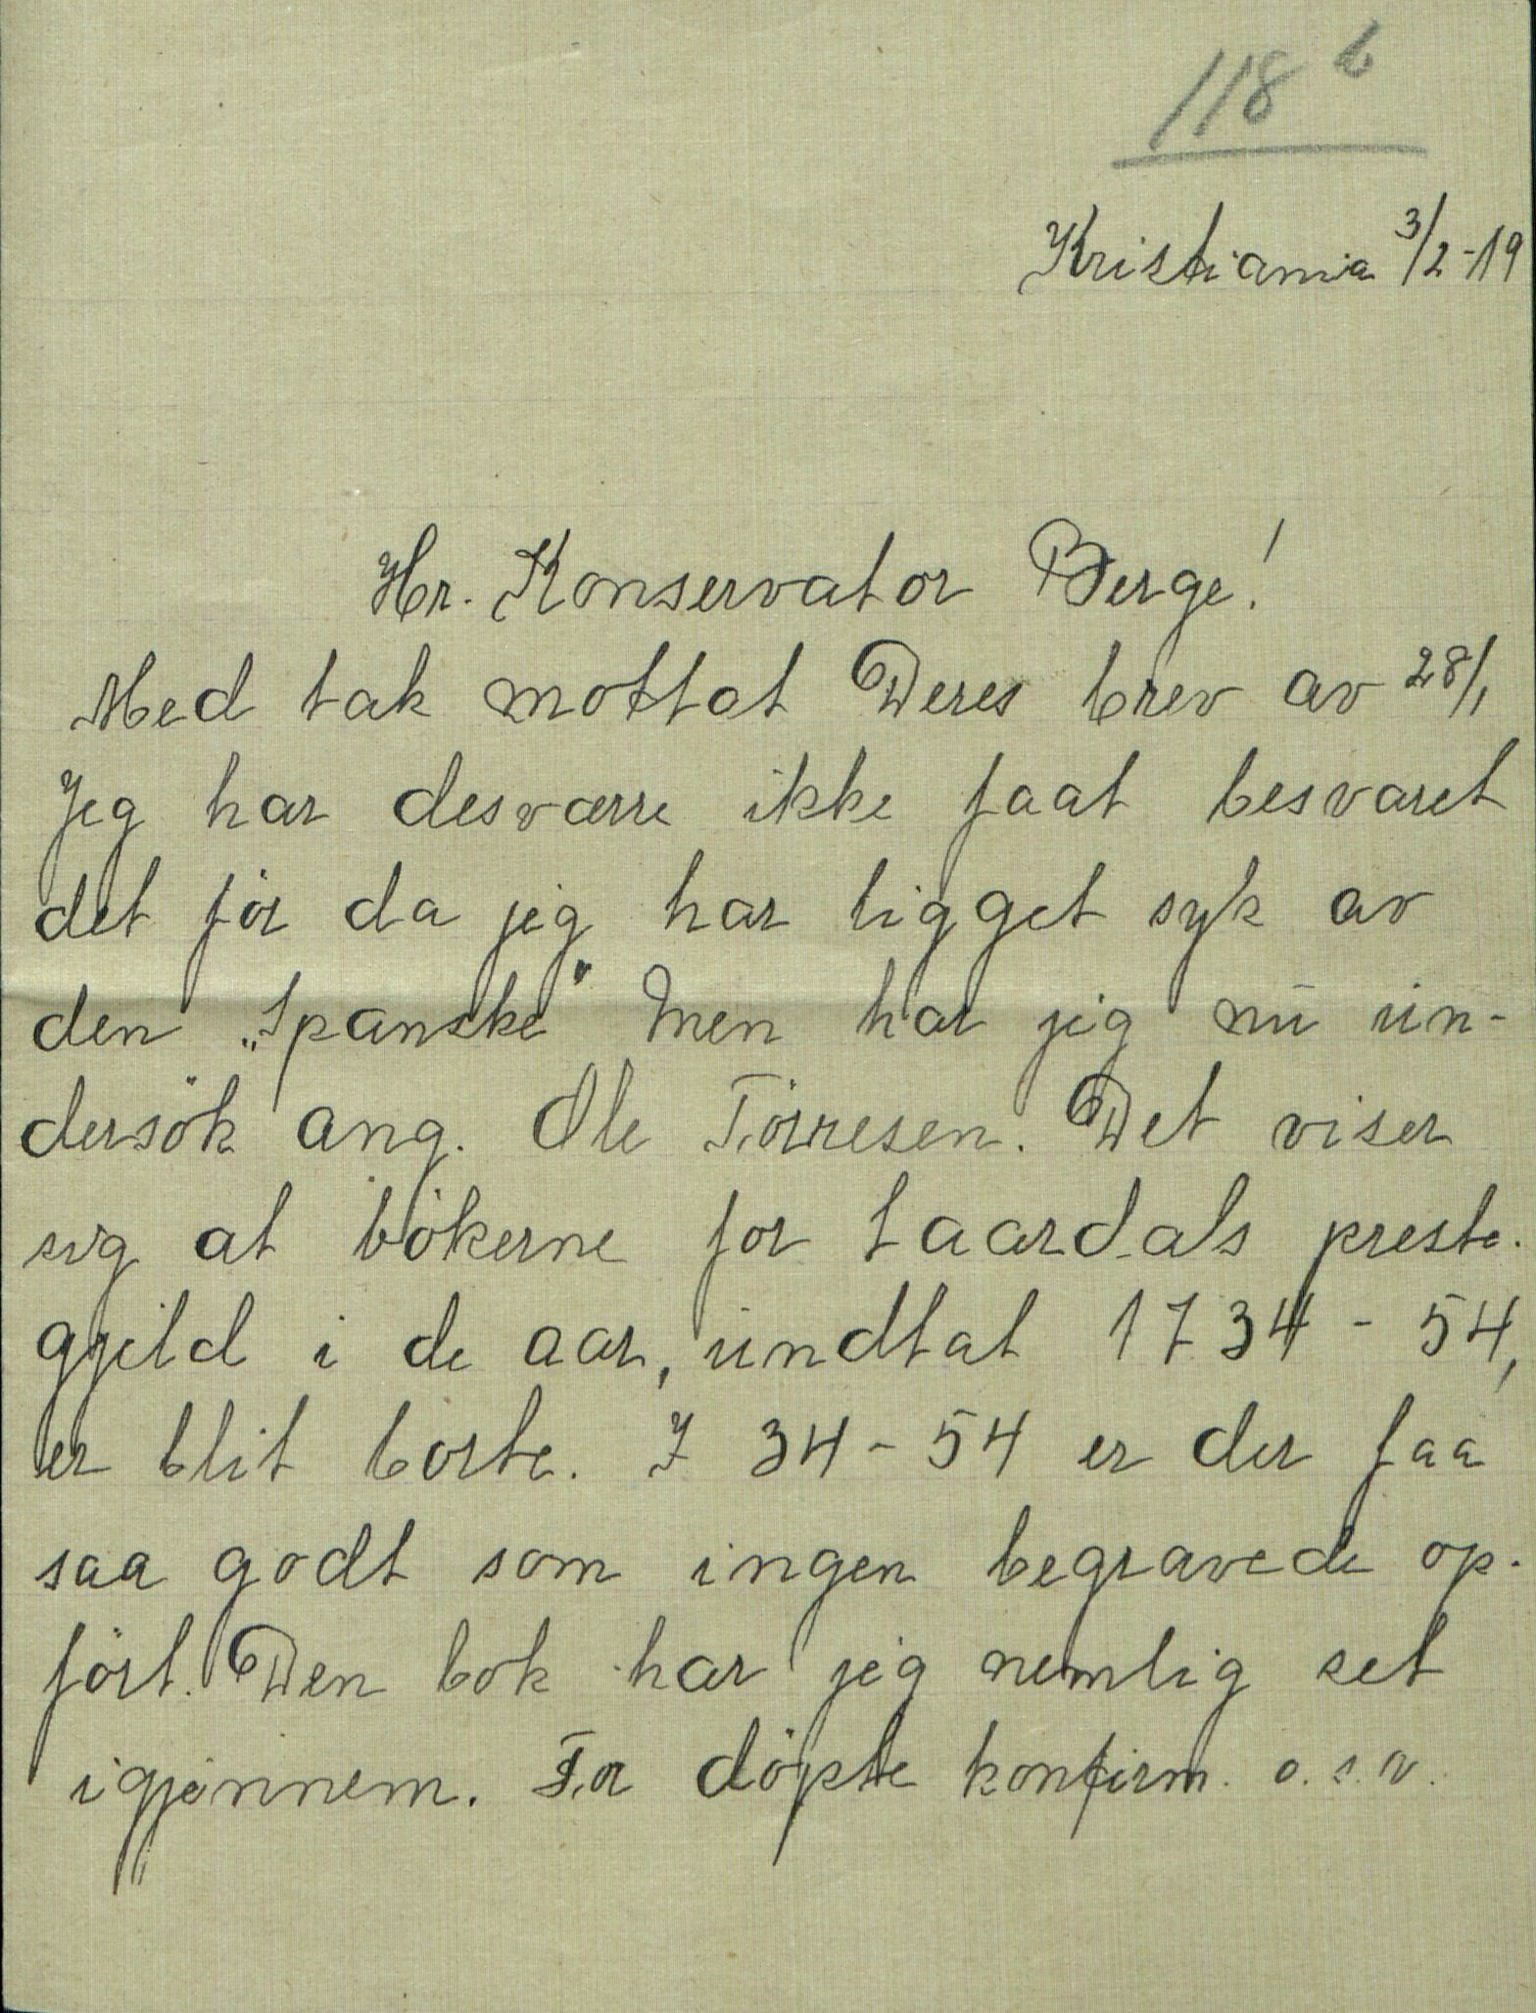 118 b
Kristiania 3/2-19
Hr. Konservator Berge!
Med tak mottat Deres brev av 28/1
Jeg har desværre ikke faat besvaret
det før da jeg har ligget syk av
den „Spanske" Men har jeg nu un-
dersök ang. Ole Tørresen. Det viser
sig at bøkerne for Laardals preste-
gjeld i de aar, undtat 1734 - 54,
er blit borte. I 34 - 54 er der faa
saa godt som ingen begravede op-
ført. Den bok har jeg nemlig set
igjennem. For døpte konfirm. o.s.v.